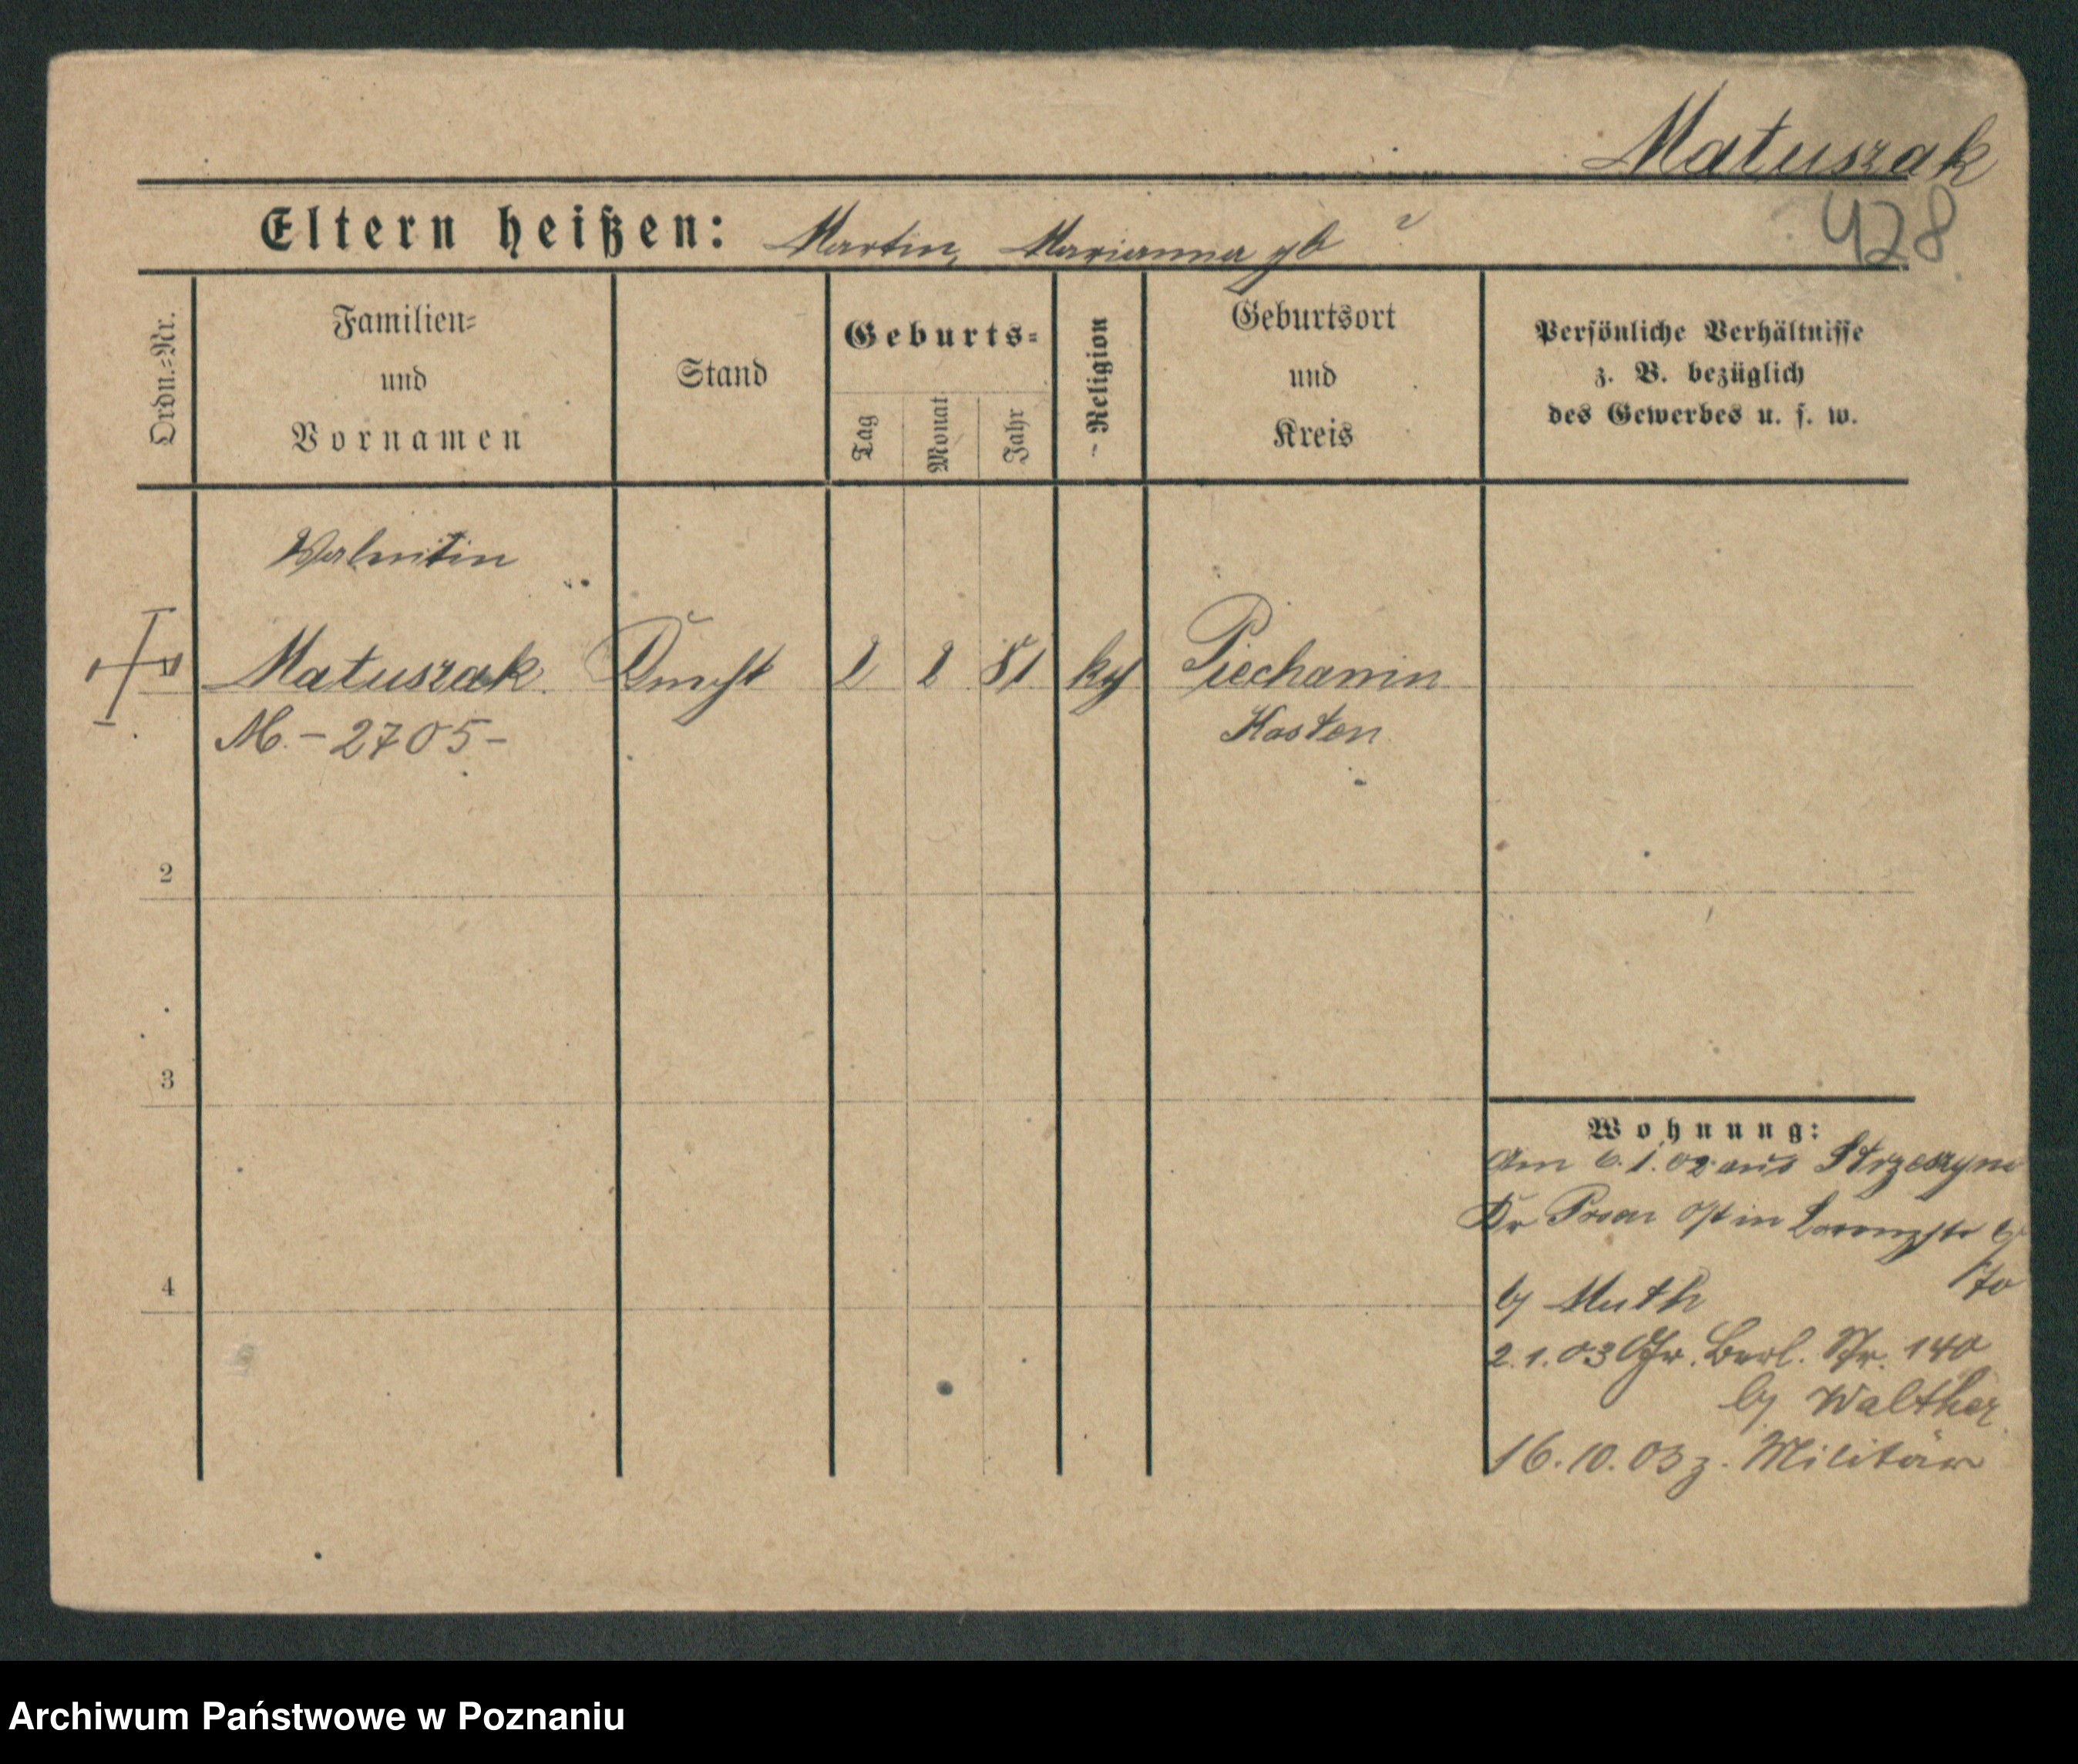 Matuszak
428
Eltern heißen: Martin, Marianna gb ?
Ordn.-Nr.
Familien-
und
Vornamen
Stand
Geburts-
Tag
Monat
Jahr
Religion
Geburtsort
und
Kreis
Persönliche Verhältnisse
z. B. bezüglich
des Gewerbes u. s. w.
Valentin
Matuszak 2 2 81 Piechanin
M. - 2705 - Kosten
2
3
4
Wohnung:
Am 6.1.02 aus
Kr Posen Ost in
bj Muth
2.1.03 Gr. Berl. Str. 140
bj Walther
16.10.03 z. Militär
Archiwum Państwowe w Poznaniu